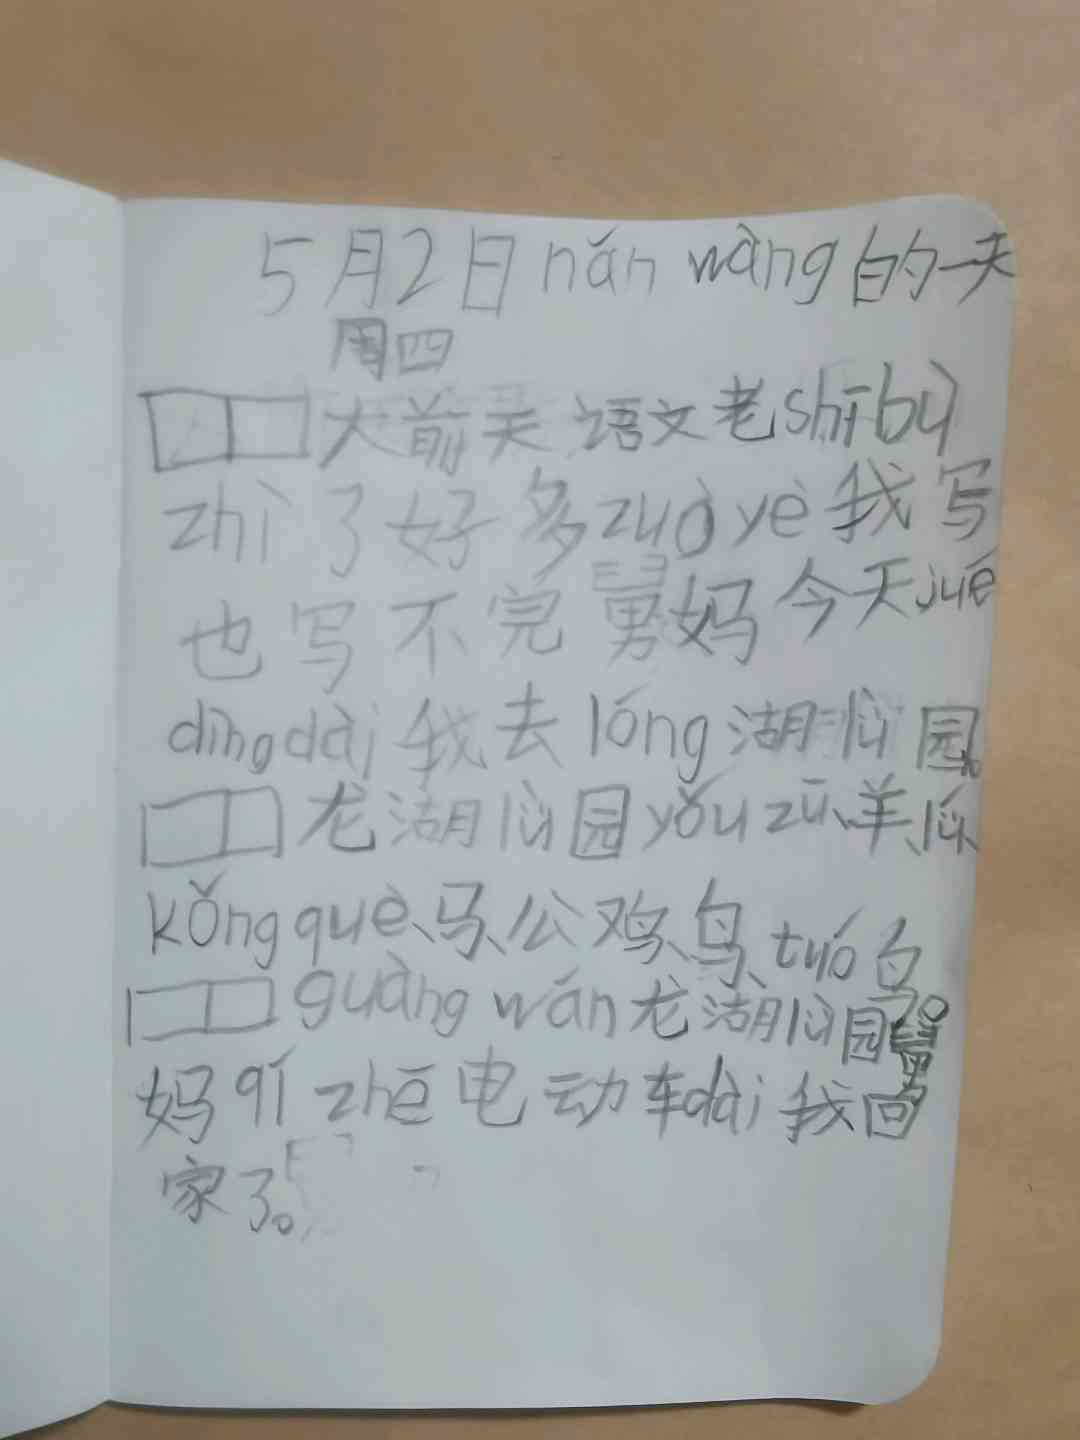 5月2日nán wàng的一天
周四
大前天语文老shī bù
zhì了好多zuò yè我写
也写不完舅妈今天jué
dìng dài我去lóng湖公园。
龙湖公园yǒu zū、羊、
kǒng què、马、公鸡、鸟、tuó鸟。
guàng wán龙湖公园舅
妈qí zhē电动车dài我回
家了。